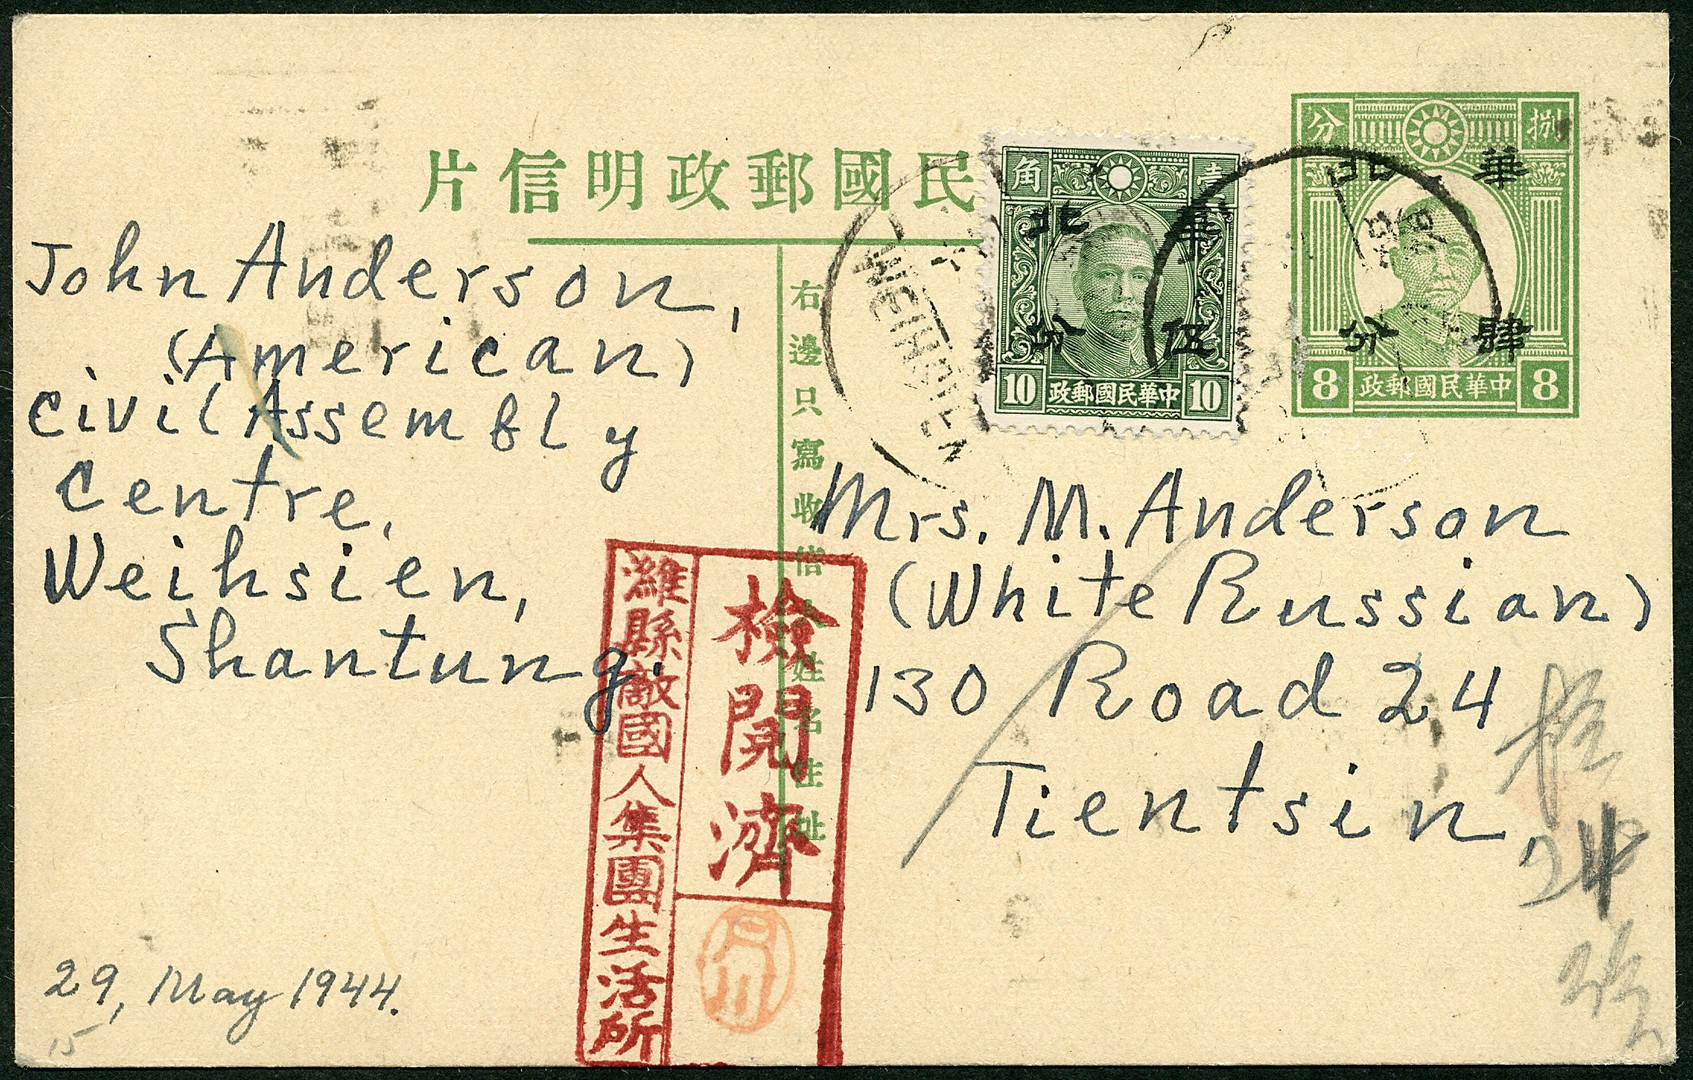 片信明政郵國民
角 壹
北 華
分 伍
10 政郵國民華中 10
分 捌
北 華
分 肆
8 政郵國民華中 8
WEIHSIEN
John Anderson,
(American)
Civil Assembly
Centre,
Weihsien,
Shantung.
29, May 1944.
15
右邊只寫收信人姓名住址
檢開濟
濰縣敵國人集團生活所
Mrs. M. Anderson
(White Russian)
130 Road 24
Tientsin,
24